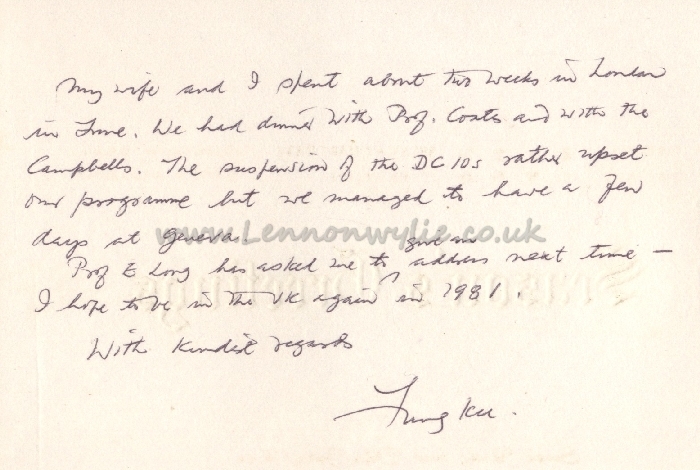 My wife and I spent about two weeks in London
in June. We had dinner with Prof. Coates and with the
Campbells. The suspension of the DC10s rather upset
our programme but we managed to have a few
days at Geneva.
www.Lennonwylie.co.uk
Prof E Long has asked me to give an address next time –
I hope to be in the UK again in 1981.
With kindest regards
Season's Greetings